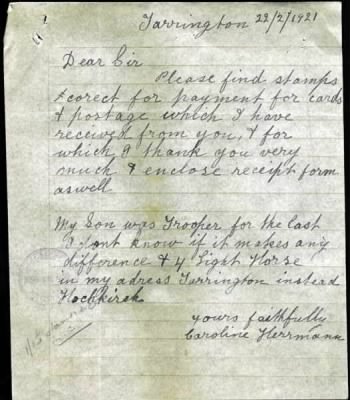 Tarrington 22/2/1921
Dear Sir
Please find stamps
& corect for payment for cards
& postage which I have
received from you, & for
which I thank you very
much & enclose receipt form
aswell
My Son was Trooper for the last
I dont know if it makes any
difference & 4 Light Horse
in my adress Tarrington instead
Hochkirch
yours faithfully
Caroline Herrmann